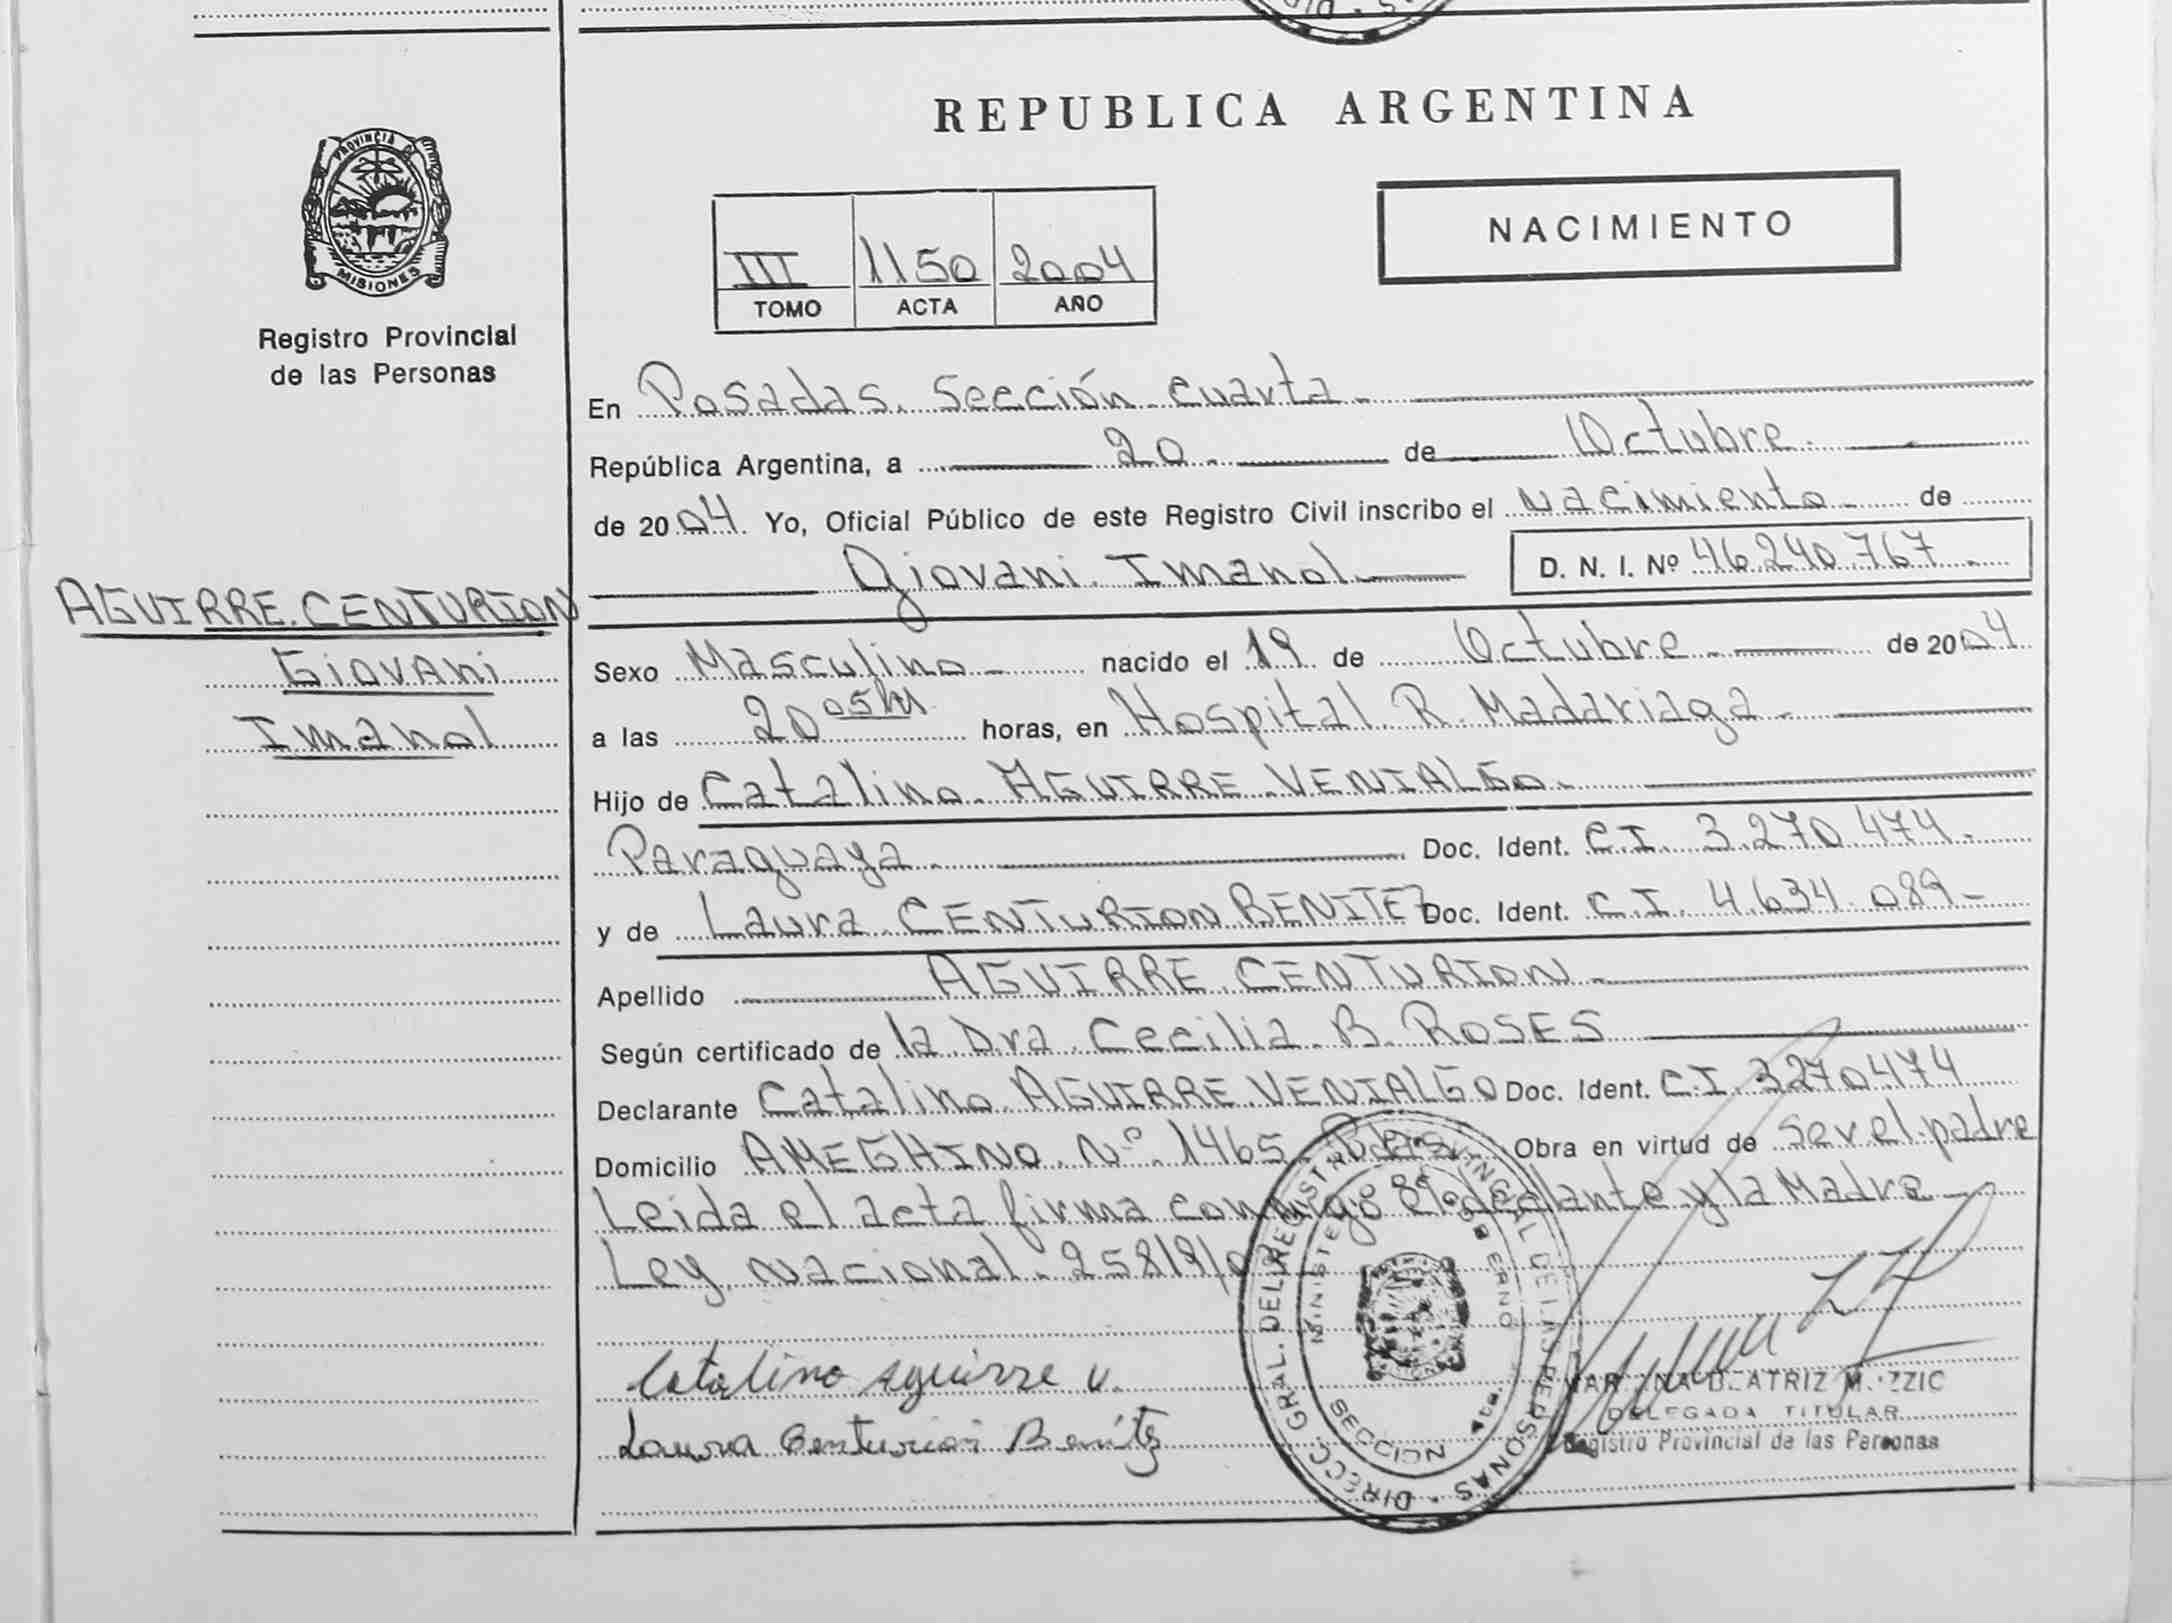 REPUBLICA ARGENTINA
NACIMIENTO
PROVINCIA DE
MISIONES
Registro Provincial
de las Personas
III 1150 2004
TOMO ACTA AÑO
En Posadas. Sección Cuarta
República Argentina, a 20 de Octubre
de 2004. Yo, Oficial Público de este Registro Civil inscribo el nacimiento de
Giovani Imanol D. N. I. Nº 46.240.767
AGUIRRE CENTURION
Giovani
Imanol
Sexo Masculino nacido el 19 de Octubre de 2004
a las 20 05m horas, en Hospital R. Madariaga
Hijo de Catalino AGUIRRE VENIALGO
Paraguaya Doc. Ident. C.I. 3.270.474
y de Laura CENTURION BENITEZ Doc. Ident. C.I. 4.634.089
Apellido AGUIRRE CENTURION
Según certificado de la Dra. Cecilia B. ROSES
Declarante Catalino AGUIRRE VENIALGO Doc. Ident. C.I. 3270474
Domicilio AMEGHINO Nº 1465 Pdas Obra en virtud de ser el padre
Leida el acta firma conmigo el y la Madre
Ley Nacional
Catalino Aguirre V.
Laura Centurion Benítez
DIRECC. GRAL. DEL REGISTRO PROVINCIAL DE LAS PERSONAS
MINISTERIO DE GOBIERNO
SECCION 4ta.
BEATRIZ
DELEGADA TITULAR
Registro Provincial de las Personas